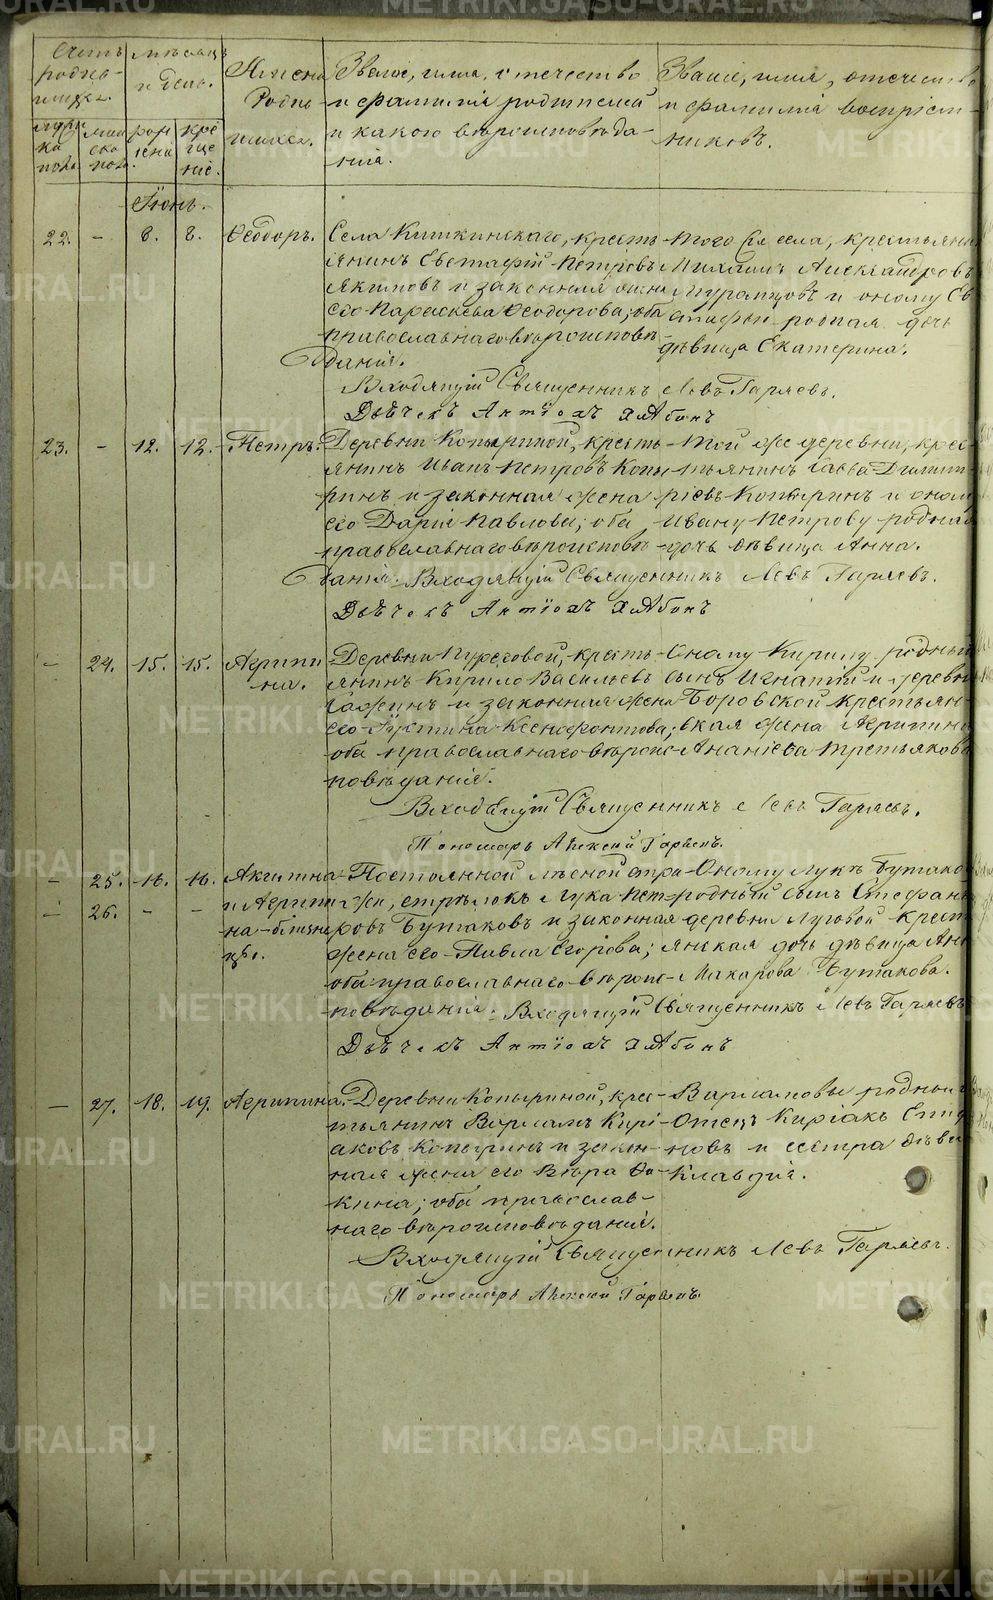 METRIKI.GASO-URAL.RU
Счетъ родив-шихся.
Мѣсяцъ и день.
Имена Родив-шихся.
Званіе, имя, отечество и фамилія родителей и какого вѣроисповѣда-нія.
Званіе, имя, отечество и фамилія воспріем-никовъ.
мужс-ка пола
женс-ко пола
рож-денія
кре-ще-ніе.
Іюнь.
22. - 8. 8. Ѳеодоръ.
Села Киткинскаго, кресть-
янинъ Евстафій Петровъ
Якимовъ и законная жена
его Параскева Ѳеодорова; оба
православнаго вѣроисповѣ-
данія.
того же села, крестьянинъ
Михаилъ Александровъ
и оному Ев-
стафью родная дочь
дѣвица Екатерина.
Входящій Священникъ Левъ Гаряевъ.
Дьячекъ Антіохъ
23. - 12. 12. Петръ.
Деревни Копыриной, кресть-
янинъ Иванъ Петровъ Копы-
ринъ и законная жена
его Дарія Павлова; оба
православнаго вѣроисповѣ-
данія.
той же деревни, крес-
тьянинъ Савва Димит-
ріевъ Копыринъ и оному
Ивану Петрову родная
дочь дѣвица Анна.
Входящій Священникъ Левъ Гаряевъ.
Дьячекъ Антіохъ
- 24. 15. 15. Агрипи-
на.
Деревни кресть-
янинъ Кирило Васильевъ
и законная жена
его Іустина Ксенофонтова;
оба православнаго вѣроис-
повѣданія.
Оному Кирилу родный
сынъ Игнатій и деревни
Боровской крестьян-
ская жена Агрипина
Ананіева Третьякова
Входящій Священникъ Левъ Гаряевъ.
Пономарь Алексій
- 25. 16. 16. Акилина
- 26. - - и Агрипи-
на-близне-
цы.
Постоянной лѣсной стра-
жи, стрѣлокъ Лука Пет-
ровъ Бутаковъ и законная
жена его Павла Егорова;
оба православнаго вѣроис-
повѣданія.
Оному Лукѣ Бутакову
родный сынъ Стефанъ
деревни Луговой крест-
янская дочь дѣвица Анна
Макарова Бутакова.
Входящій Священникъ Левъ Гаряевъ
Дьячекъ Антіохъ
- 27. 18. 19. Агрипина.
Деревни Копыриной, крес-
тьянинъ Варламъ Кирі-
аковъ Копыринъ и закон-
ная жена его Вѣра Фо-
кина; оба православ-
наго вѣроисповѣданія.
Варламовы родный
Отецъ Киріакъ
и сестра дѣвица
Клавдія.
Входящій Священникъ Левъ Гаряевъ.
Пономарь Алексій